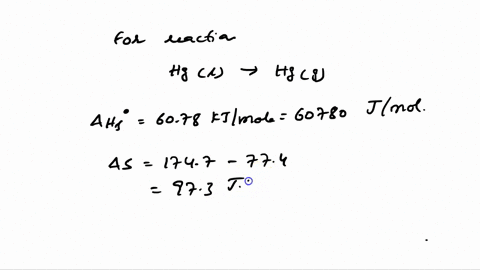 For reactio
Hg(l) → Hg(g)
ΔHf° = 60.78 KJ/mole = 60780 J/mol.
ΔS = 174.7 - 77.4
= 97.3 J.